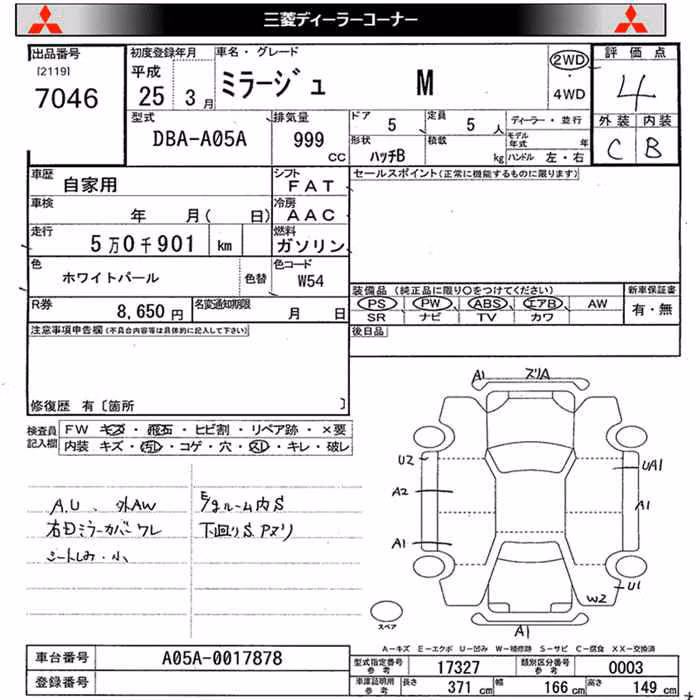 三菱ディーラーコーナー
出品番号 初度登録年月 車名・グレード 評価点
[2119] 平成 2WD
7046 25 3月 ミラージュ M 4WD 4
型式 排気量 ドア 5 定員 5人 ディーラー・並行 外装 内装
DBA-A05A 999 CC 形状 ハッチB 積載 kg モデル年式 年 C B
ハンドル 左・右
車歴 自家用 シフト FAT セールスポイント(正常に機能するものに限ります)
車検 年 月( 日) 冷房 AAC
走行 5万0千901 km 燃料 ガソリン
色 ホワイトパール 色替 色コード W54
装備品(純正品に限り〇をつけてください) 新車保証書
R券 8,650円 名変通知期限 月 日 PS PW ABS エアB AW 有・無
SR ナビ TV カワ
注意事項申告欄(不具合内容等は具体的に記入して下さい) 後日品
修復歴 有〔箇所 〕
検査員記入欄 FW キズ・飛石・ヒビ割・リペア跡・×要
内装 キズ・汚れ・コゲ・穴・スレ・キレ・破レ
A1 ズリA
U2 UA1
A2 A1
A1
U1
W2
A1
A.U、外AW
右Dミラーカバーワレ
シートしみ・小
E/gルーム内S
下回りS.Pズリ
スペア
A-キズ E-エクボ U-凹み W-補修跡 S-サビ C-腐食 XX-交換済
車台番号 A05A-0017878 型式指定番号 参考 17327 類別区分番号 参考 0003
登録番号 車庫証明用 参考 長さ 371 cm 幅 166 cm 高さ 149 cm